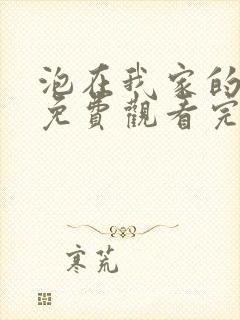 泡在我家的
免費觀看完
寒荒